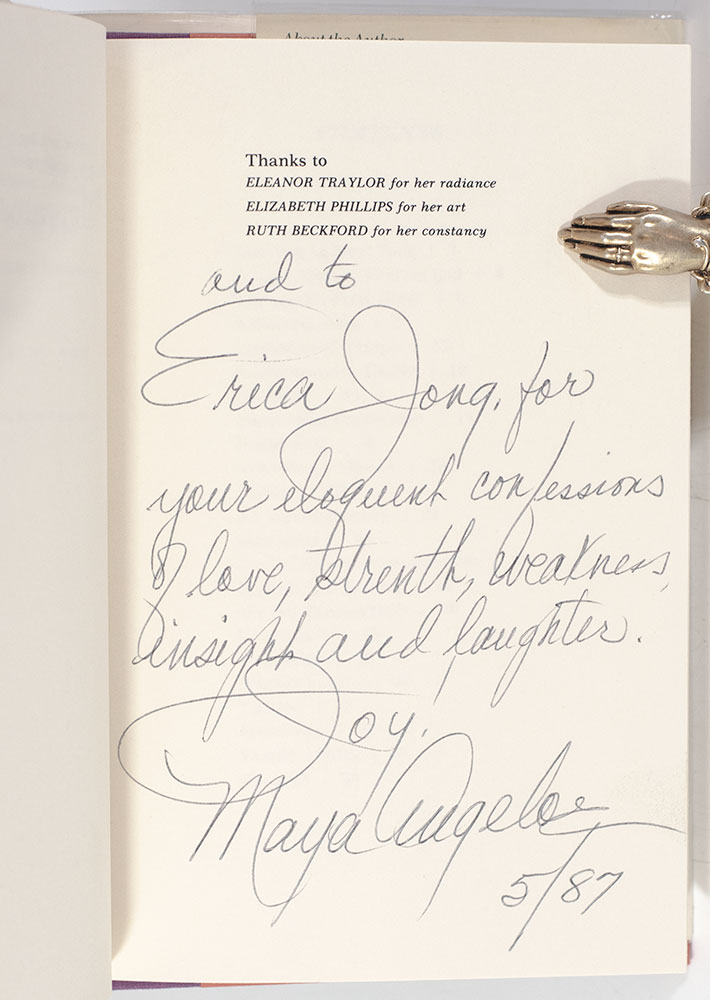 About the Author
Thanks to
ELEANOR TRAYLOR for her radiance
ELIZABETH PHILLIPS for her art
RUTH BECKFORD for her constancy
and to
Erica Jong, for
your eloquent confessions
of love, strenth, weakness,
insight and laughter.
Joy.
Maya Angelou
5/87